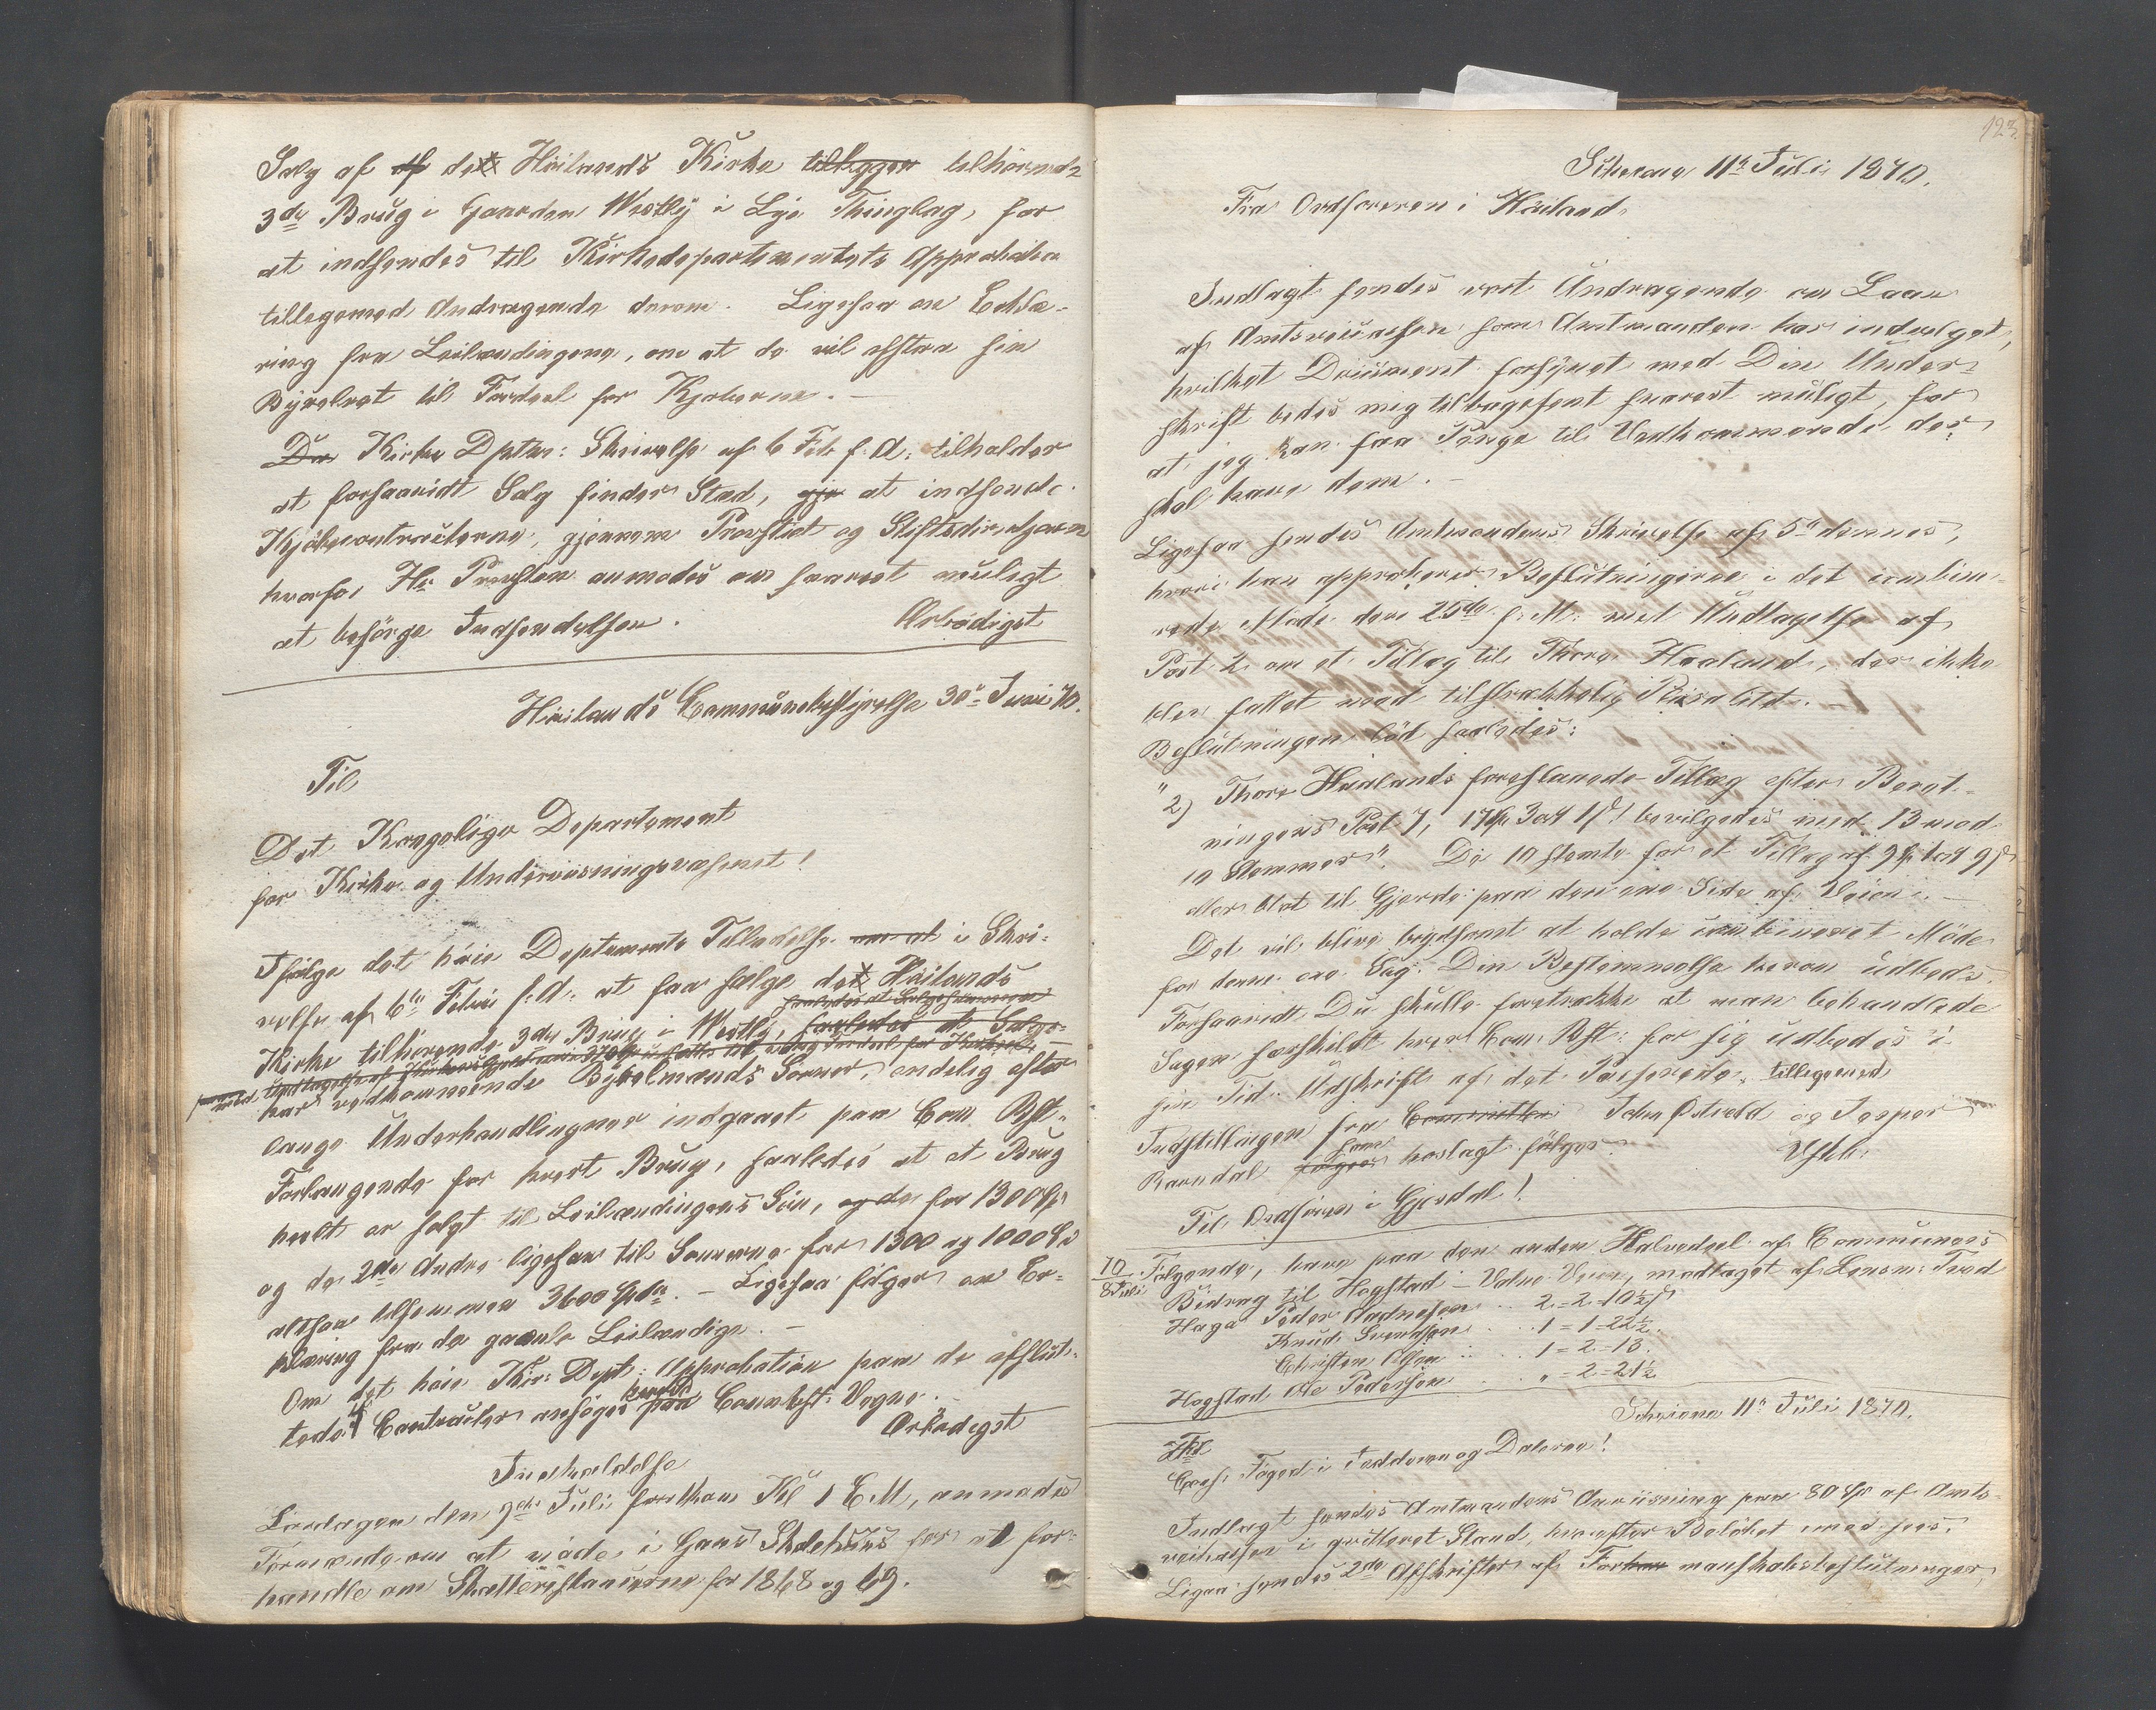 Salg af af det Høilands Kirke tillegger tilhörende
3de Brug i Gaarden Westly i Lye Thinglag, for
at indsendes til Kirkedepartementets Approbation
tillegemed Andragende derom. Ligesaa en Erklæ-
ring fra Leilændingene, om at de vil afstaa sin
Byxelret til Fordeel for Kjøberne. —
Du Kirke Dptm: Skrivelse af 6 Feb f. A. tilholder
at forsaavidt Salg finder Sted, gje at indsende
Kjöbecontracterne, gjennem Provstiet og Stiftsdirektionen
hvorfor Hr Presten anmodes om snarest muligt
at besörge Indsendelsen. Ærbödigst
Höilands Communebestyrelse 30te Juni 70.
Til
Det Kongelige Departement
for Kirke og Underviisningsvæsenet!
Ifölge det höie Deptements Tilladelse om at i Skri-
velse af 6te Febru f. A. at faa sælge det Höilands
saaledes at Salgssummen
Kirke tilhörende 3de Brug i Westly, saaledes at Salgs-
med Undtagelse af
har vedkommende Byxelmænds Sönner, endelig efter
lange Underhandlinger indgaaet paa Com Bst.
Forlangende for hvert Brug, saaledes at et Brug
heelt er solgt til Leilændingens Sön, og de for 1300 Sp
og de 2de Andre ligesaa til Sönnerne for 1300 og 1000 Sp
altsaa tilsammen 3600 Spd. — Ligesaa fölger en Er-
klæring fra de gamle Leilændige. —
Om det höie Kir: Dept: Approbation paa de afslut-
tede Contracter ansöges herved paa Combst: Vegne.
Ærbödigst
Indkaldelse
Lördagen den 9de Juli forstkom Kl 1 E. M, anmodes
Formændene om at möde i Gans Skolehuus for at for-
handle om Skatterestancerne for 1868 og 69.
123
Skeiane 11te Juli 1870.
Fra Ordföreren i Höiland
Indlagt sendes vort Andragende om Laan
af Amtsveicassen som Amtmanden har indvilget,
hvilket Document forsynet med Din Under-
skrift bedes mig tilbagesent snarest muligt, for
at jeg kan faa Penge til Vedkommende der
skal have dem. —
Ligesaa sendes Amtmandens Skrivelse af 5te dennes,
hvori han approberer Beslutningerne i det combine-
rede Möde den 25de f. M. med Undtagelse af
Post 2 om et Tillæg til Thore Haaland, der ikke
blev fattet med tilstrækkelig Pluralitet.
Beslutningen löd saaledes:
"2) Thore Haalands foreslaaede Tillæg efter Beret-
ningens Post 7, 17 Sp 3 ort 1 s! bevilgedes med 13 mod
10 Stemmer". De 10 stemte for et Tillæg af 9 Sp 1 ort 9 s
eller blot til Gjerde paa den ene Side af Veien. —
Det vil blive beqvemt at holde combineret Möde
for denne ene Sag. Din Bestemmelse herom udbedes.
Forsaavidt Du skulle foretrække at man behandlede
Sagen særskildt hver Com. Bst: for sig udbedes i
sin Tid Udskrift af det Passerede, tillegemed
Indstillingen fra Committeen John Östvold og Jesper
Ravndal fölger som hoslagt fölger. Vsbl.
Til Ordförer i Gjesdal!
70
8 Juli
Fölgende, have paa den anden Halvedeel af Communens
Bidrag til Hogstad – Vatne Veien, modtaget af Lensm: Tved
Haga Peder Aadnesen . . 2 = 2 = 10½ s
Knud Svendsen . . 1 = 1 = 22½
Christen Olsen . . 1 = 2 = 13.
Hogstad Ole Pedersen . . " = 2 = 21½
Skeiane 11te Juli 1870.
Til
Const. Foged i Jædderen og Dalerne!
Indlagt sendes Amtmandens Anviisning paa 80 Sp af Amts-
veikassen i qvitteret Stand, hvorefter Belöbet imødesees.
Ligesaa sendes 2de Afskrifter af Forhan mandskabsbeslutninger